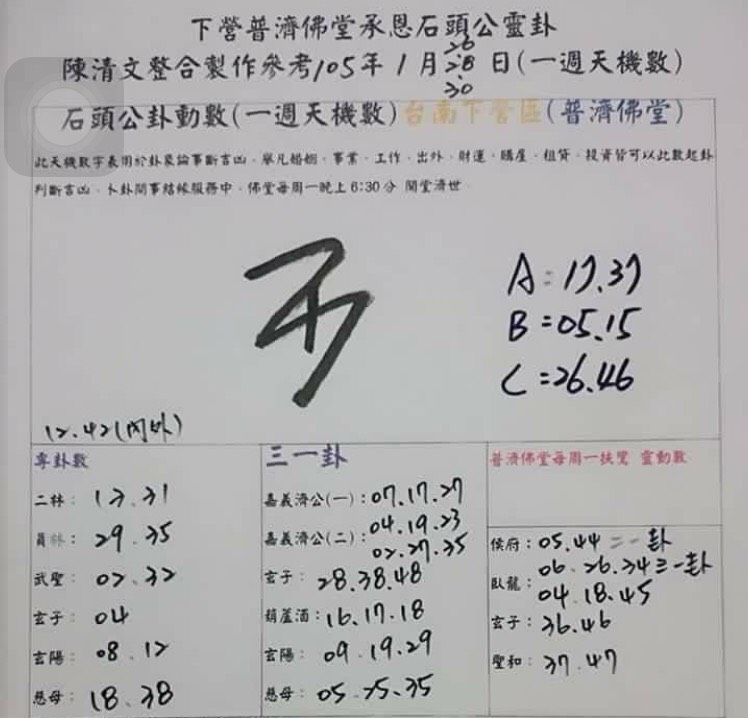 下營普濟佛堂承恩石頭公靈卦
26.
陳清文整合製作參考105年1月28日(一週天機數)
30
石頭公卦動數(一週天機數)台南下營區(普濟佛堂)
此天機數字表用於卦象論事斷吉凶、舉凡婚姻、事業、工作、出外、財運、購屋、租賃、投資皆可以此數起卦
判斷吉凶、卜卦問事結緣服務中、佛堂每周一晚上6:30分 開堂濟世
A=17.37
B=05.15
C=26.46
12.42(內外)
專卦數
二林: 12.31
員林: 29.35
武聖: 02.32
玄子: 04
玄陽: 08.12
慈母: 18.38
三一卦
嘉義濟公(一):07.17.27
嘉義濟公(二):04.19.23
02.27.35
玄子: 28.38.48
葫蘆酒:16.17.18
玄陽: 09.19.29
慈母: 05.25.35
普濟佛堂每周一扶鸞 靈動數
侯府:05.44二一卦
06.26.34三一卦
臥龍:04.18.45
玄子:36.46
聖和:37.47